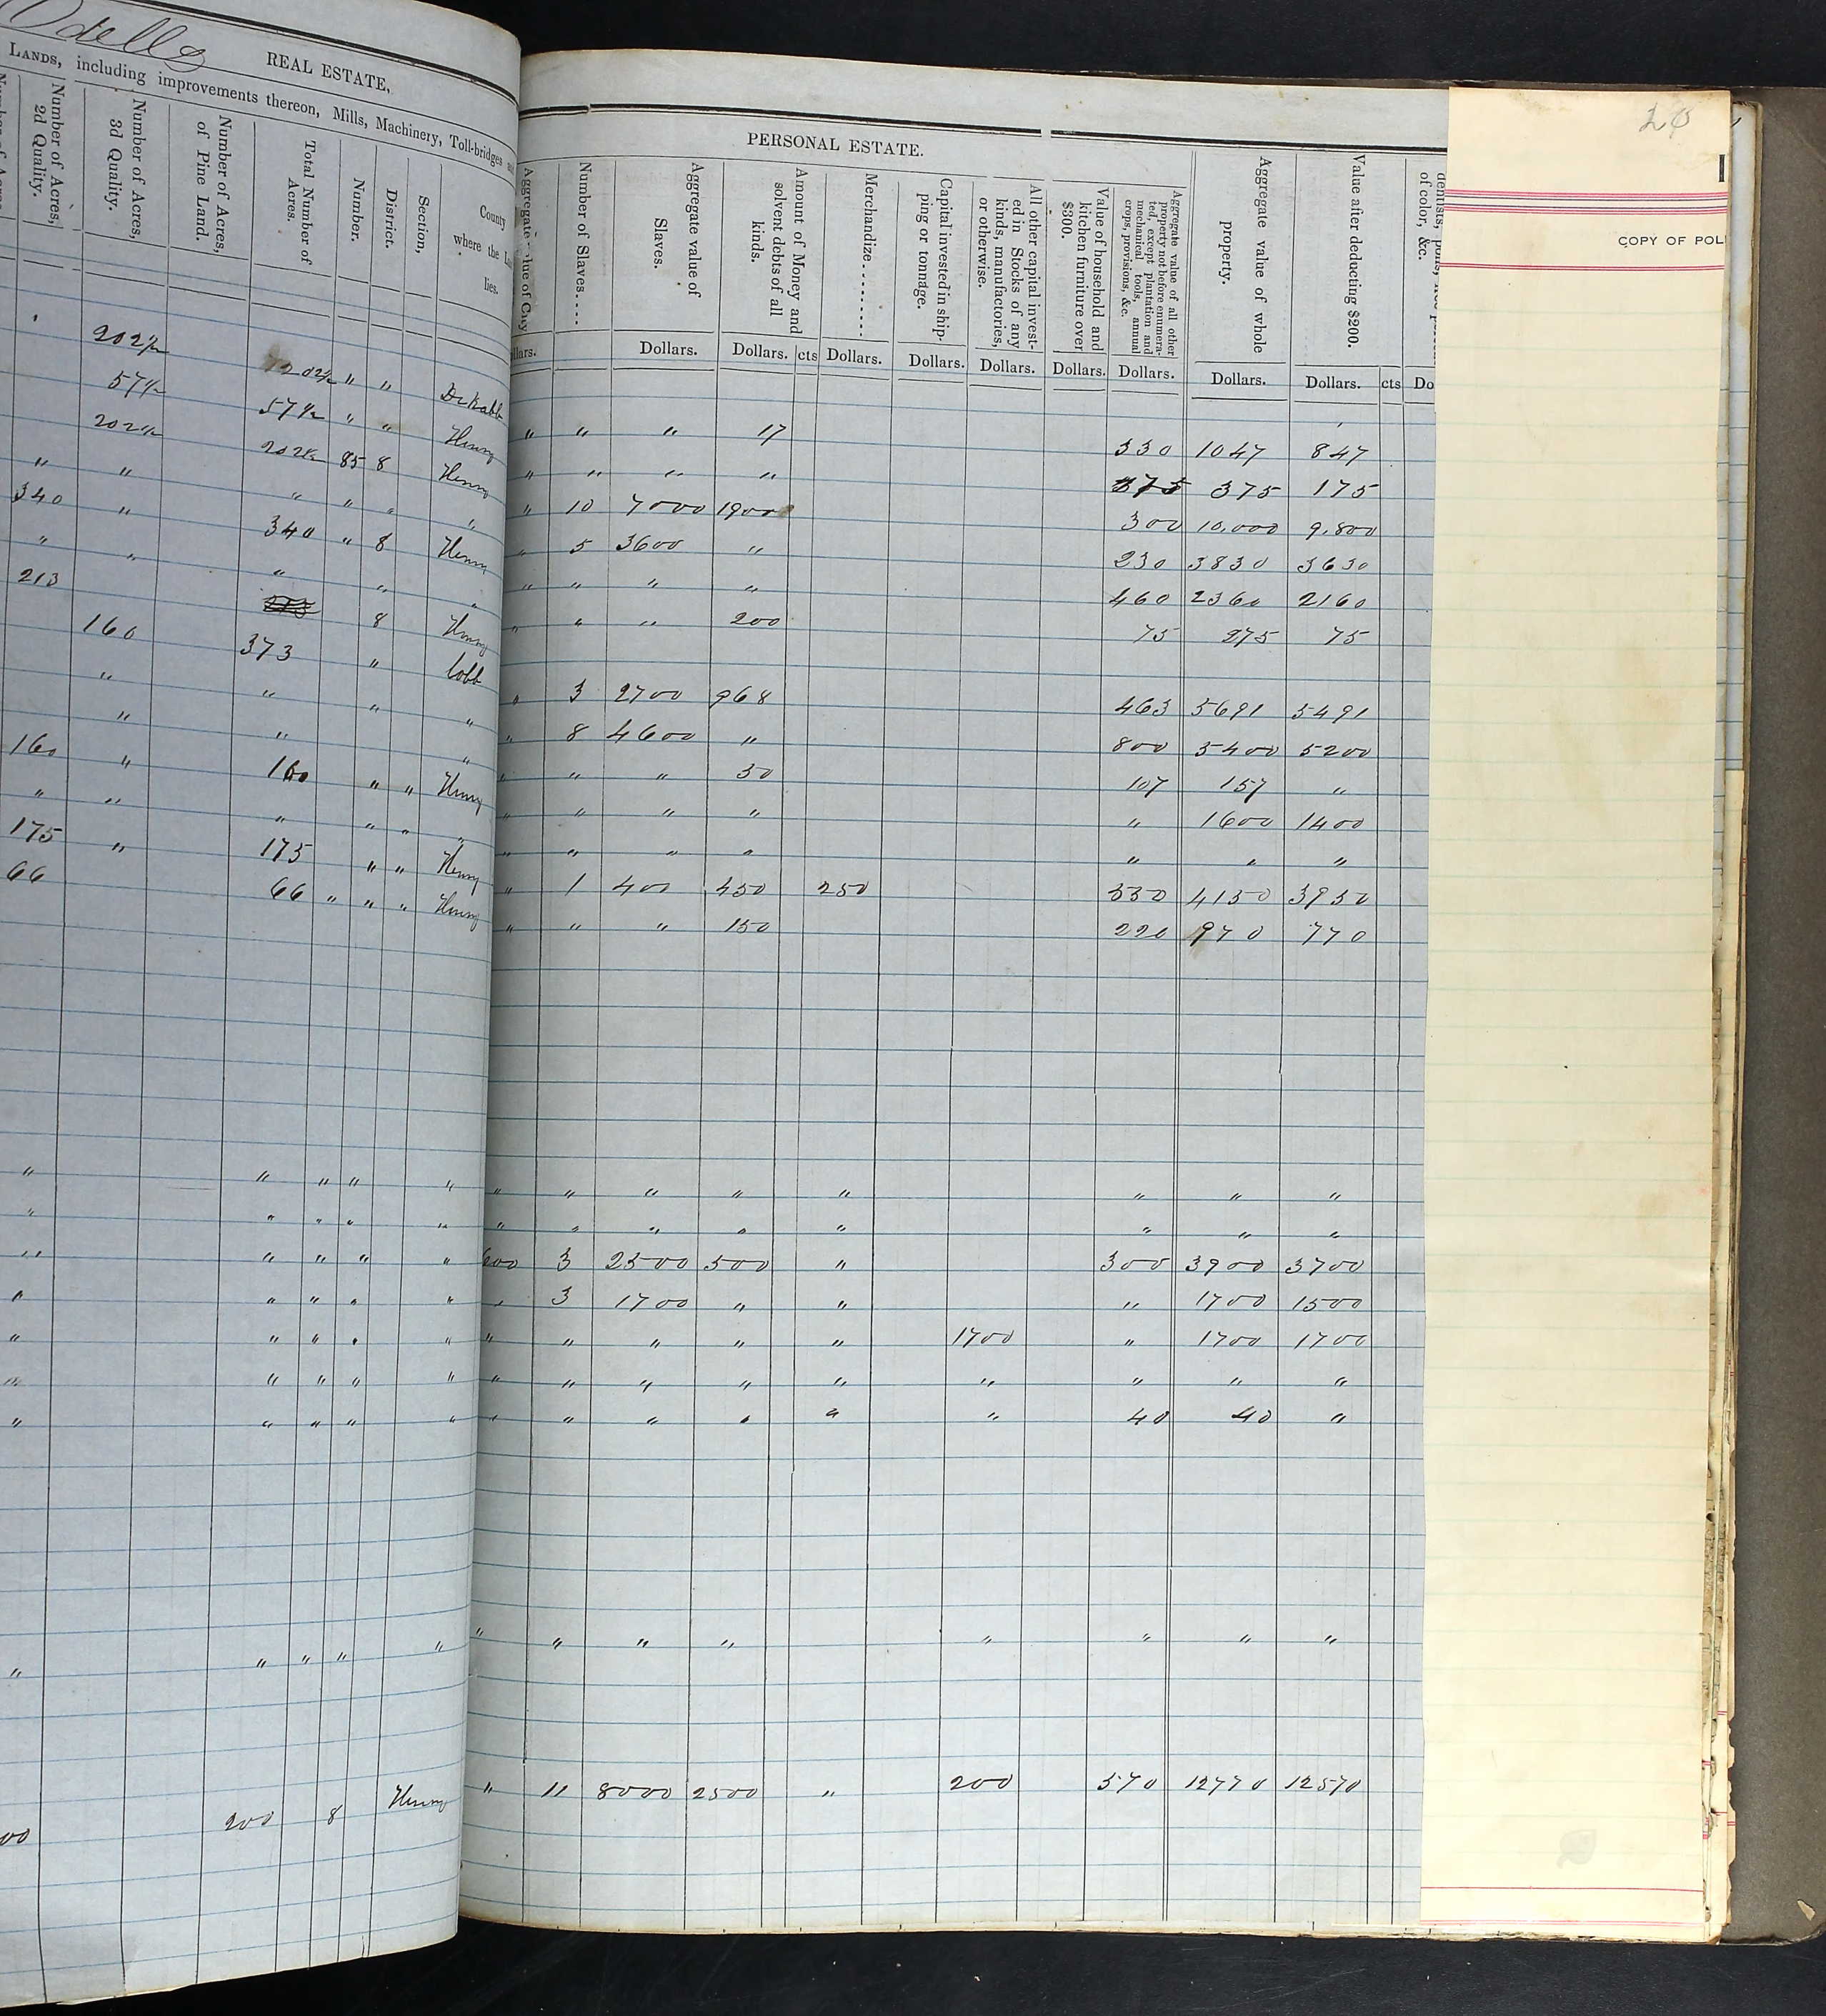 Odells
REAL ESTATE,
LANDS, including improvements thereon, Mills, Machinery, Toll-bridges
Number of Acres, 2d Quality.
Number of Acres, 3d Quality.
Number of Acres, of Pine Land.
Total Number of Acres.
Number.
District.
Section,
County where the lies.
202½ 202½ " " DeKalb
57½ 57½ " " Henry
202½ 202½ 85 8 Henry
" " " " " "
340 " 340 " 8 Henry
" " " " "
213 8 Henry
160 373 " Cobb
" " " "
" " "
160 " 160 " " Henry
" " " " " "
175 " 175 " " Henry
66 66 " " " Henry
" " " " "
" " " " "
" " " " "
" " " " "
" " " " "
" " " " "
" " " " "
" " " " "
00 200 8 Henry
PERSONAL ESTATE.
Number of Slaves....
Aggregate value of Slaves.
Amount of Money and solvent debts of all kinds.
Merchandize.........
Capital invested in shipping or tonnage.
All other capital invested in Stocks of any kinds, manufactories, or otherwise.
Value of household and kitchen furniture over $300.
Aggregate value of all other property not before enumerated, except plantation and mechanical tools, annual crops, provisions, &c.
Aggregate value of whole property.
Value after deducting $200.
of color, &c.
Dollars. Dollars. cts Dollars. Dollars. Dollars. Dollars. Dollars. Dollars. Dollars. cts Do
" " " 17 330 1047 847
" " " " 375 375 175
" 10 7000 1900 300 10,000 9,800
" 5 3600 " 230 3830 3630
" " " " 460 2360 2160
" " " 200 75 275 75
" 3 2700 968 463 5691 5491
" 8 4600 " 800 5400 5200
" " " 50 107 157 "
" " " " " 1600 1400
" " " " " " "
" 1 400 450 250 330 4150 3950
" " " 150 220 970 770
" " " " " " " "
" " " " " " " "
600 3 2500 500 " 300 3900 3700
" 3 1700 " " " 1700 1500
" " " " " 1700 " 1700 1700
" " " " " " " " "
" " " " " " 40 40 "
" " " " " " " "
" 11 8000 2500 " 200 570 12770 12570
COPY OF POL